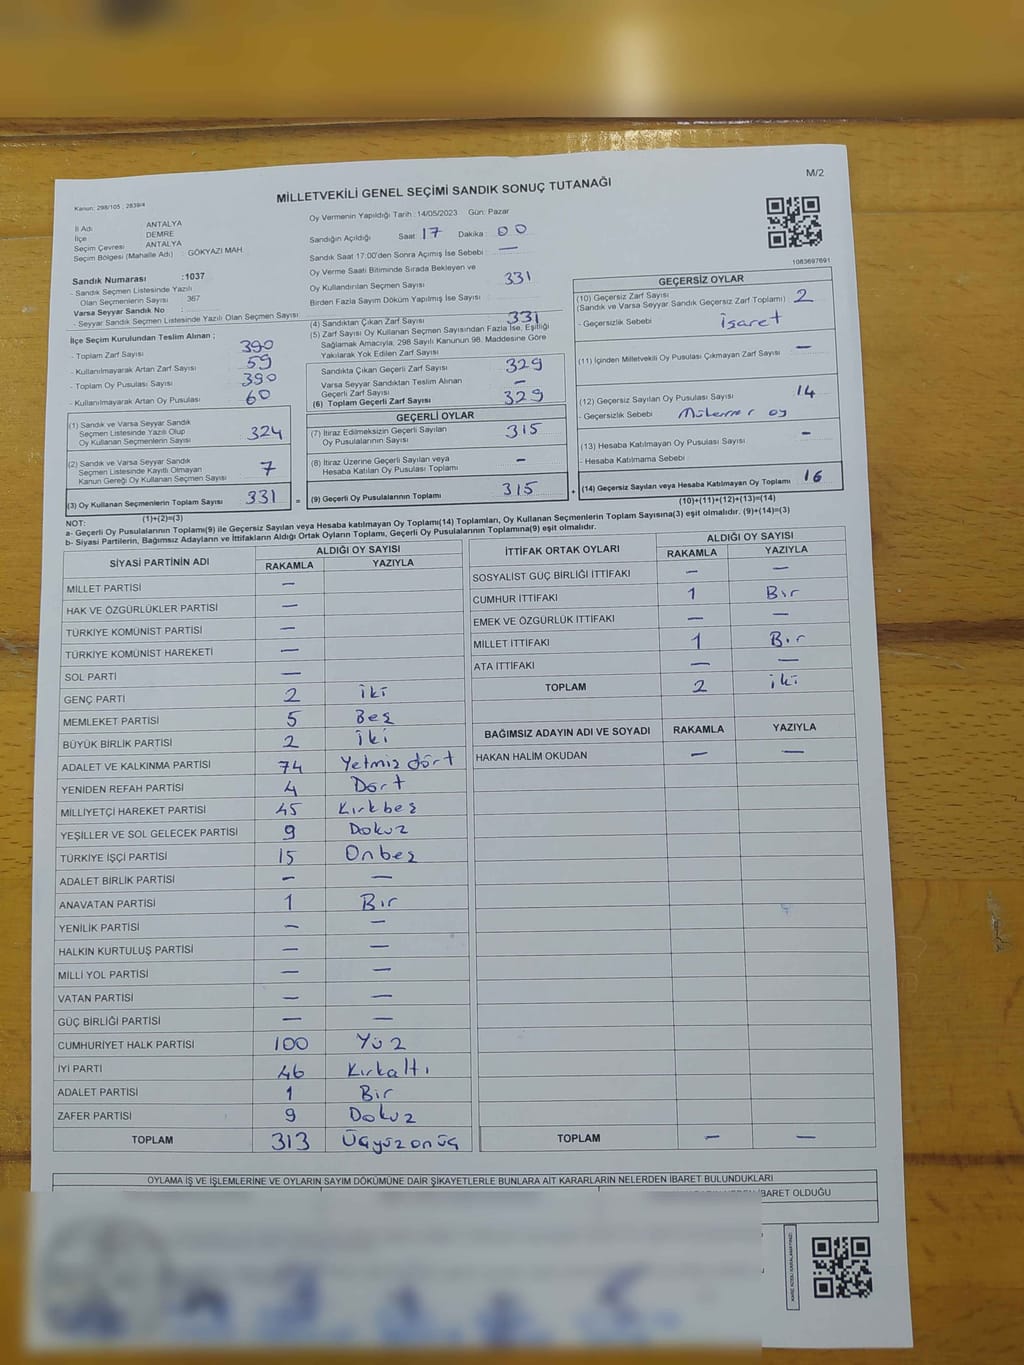 M/2
Kanun: 298/105 ; 2839/4
MİLLETVEKİLİ GENEL SEÇİMİ SANDIK SONUÇ TUTANAĞI
İl Adı : ANTALYA
İlçe : DEMRE
Seçim Çevresi : ANTALYA
Seçim Bölgesi (Mahalle Adı) : GÖKYAZI MAH.
Sandık Numarası :1037
- Sandık Seçmen Listesinde Yazılı
Olan Seçmenlerin Sayısı : 367
Varsa Seyyar Sandık No :
- Seyyar Sandık Seçmen Listesinde Yazılı Olan Seçmen Sayısı :
Oy Vermenin Yapıldığı Tarih : 14/05/2023 Gün: Pazar
Sandığın Açıldığı Saat: 17 Dakika: 00
Sandık Saat 17:00'den Sonra Açımış İse Sebebi : —
Oy Verme Saati Bitiminde Sırada Bekleyen ve
Oy Kullandırılan Seçmen Sayısı : 331
Birden Fazla Sayım Döküm Yapılmış İse Sayısı :
1083697691
İlçe Seçim Kurulundan Teslim Alınan ;
- Toplam Zarf Sayısı : 390
- Kullanılmayarak Artan Zarf Sayısı : 59
- Toplam Oy Pusulası Sayısı : 390
- Kullanılmayarak Artan Oy Pusulası : 60
(1) Sandık ve Varsa Seyyar Sandık
Seçmen Listesinde Yazılı Olup
Oy Kullanan Seçmenlerin Sayısı 324
(2) Sandık ve Varsa Seyyar Sandık
Seçmen Listesinde Kayıtlı Olmayan
Kanun Gereği Oy Kullanan Seçmen Sayısı 7
(3) Oy Kullanan Seçmenlerin Toplam Sayısı 331 =
(1)+(2)=(3)
(4) Sandıktan Çıkan Zarf Sayısı 331
(5) Zarf Sayısı Oy Kullanan Seçmen Sayısından Fazla İse, Eşitliği
Sağlamak Amacıyla, 298 Sayılı Kanunun 98. Maddesine Göre
Yakılarak Yok Edilen Zarf Sayısı
Sandıkta Çıkan Geçerli Zarf Sayısı 329
Varsa Seyyar Sandıktan Teslim Alınan
Geçerli Zarf Sayısı —
(6) Toplam Geçerli Zarf Sayısı 329
GEÇERLİ OYLAR
(7) İtiraz Edilmeksizin Geçerli Sayılan
Oy Pusulalarının Sayısı 315
(8) İtiraz Üzerine Geçerli Sayılan veya
Hesaba Katılan Oy Pusulası Toplamı —
(9) Geçerli Oy Pusulalarının Toplamı 315 +
GEÇERSİZ OYLAR
(10) Geçersiz Zarf Sayısı
(Sandık ve Varsa Seyyar Sandık Geçersiz Zarf Toplamı) 2
- Geçersizlik Sebebi İşaret
(11) İçinden Milletvekili Oy Pusulası Çıkmayan Zarf Sayısı —
(12) Geçersiz Sayılan Oy Pusulası Sayısı 14
- Geçersizlik Sebebi Mükerrer oy
(13) Hesaba Katılmayan Oy Pusulası Sayısı —
- Hesaba Katılmama Sebebi
(14) Geçersiz Sayılan veya Hesaba Katılmayan Oy Toplamı 16
(10)+(11)+(12)+(13)=(14)
NOT:
a- Geçerli Oy Pusulalarının Toplamı(9) ile Geçersiz Sayılan veya Hesaba katılmayan Oy Toplamı(14) Toplamları, Oy Kullanan Seçmenlerin Toplam Sayısına(3) eşit olmalıdır. (9)+(14)=(3)
b- Siyasi Partilerin, Bağımsız Adayların ve İttifakların Aldığı Oyların Toplamı, Geçerli Oy Pusulalarının Toplamına(9) eşit olmalıdır.
SİYASİ PARTİNİN ADI ALDIĞI OY SAYISI
RAKAMLA YAZIYLA
MİLLET PARTİSİ —
HAK VE ÖZGÜRLÜKLER PARTİSİ —
TÜRKİYE KOMÜNİST PARTİSİ —
TÜRKİYE KOMÜNİST HAREKETİ —
SOL PARTİ —
GENÇ PARTİ 2 İki
MEMLEKET PARTİSİ 5 Beş
BÜYÜK BİRLİK PARTİSİ 2 İki
ADALET VE KALKINMA PARTİSİ 74 Yetmiş dört
YENİDEN REFAH PARTİSİ 4 Dört
MİLLİYETÇİ HAREKET PARTİSİ 45 Kırkbeş
YEŞİLLER VE SOL GELECEK PARTİSİ 9 Dokuz
TÜRKİYE İŞÇİ PARTİSİ 15 Onbeş
ADALET BİRLİK PARTİSİ — —
ANAVATAN PARTİSİ 1 Bir
YENİLİK PARTİSİ — —
HALKIN KURTULUŞ PARTİSİ — —
MİLLİ YOL PARTİSİ — —
VATAN PARTİSİ — —
GÜÇ BİRLİĞİ PARTİSİ — —
CUMHURİYET HALK PARTİSİ 100 Yüz
İYİ PARTİ 46 Kırkaltı
ADALET PARTİSİ 1 Bir
ZAFER PARTİSİ 9 Dokuz
TOPLAM 313 Üçyüzonüç
İTTİFAK ORTAK OYLARI ALDIĞI OY SAYISI
RAKAMLA YAZIYLA
SOSYALİST GÜÇ BİRLİĞİ İTTİFAKI — —
CUMHUR İTTİFAKI 1 Bir
EMEK VE ÖZGÜRLÜK İTTİFAKI — —
MİLLET İTTİFAKI 1 Bir
ATA İTTİFAKI — —
TOPLAM 2 iki
BAĞIMSIZ ADAYIN ADI VE SOYADI RAKAMLA YAZIYLA
HAKAN HALİM OKUDAN — —
TOPLAM — —
OYLAMA İŞ VE İŞLEMLERİNE VE OYLARIN SAYIM DÖKÜMÜNE DAİR ŞİKAYETLERLE BUNLARA AİT KARARLARIN NELERDEN İBARET BULUNDUKLARI
İBARET OLDUĞU